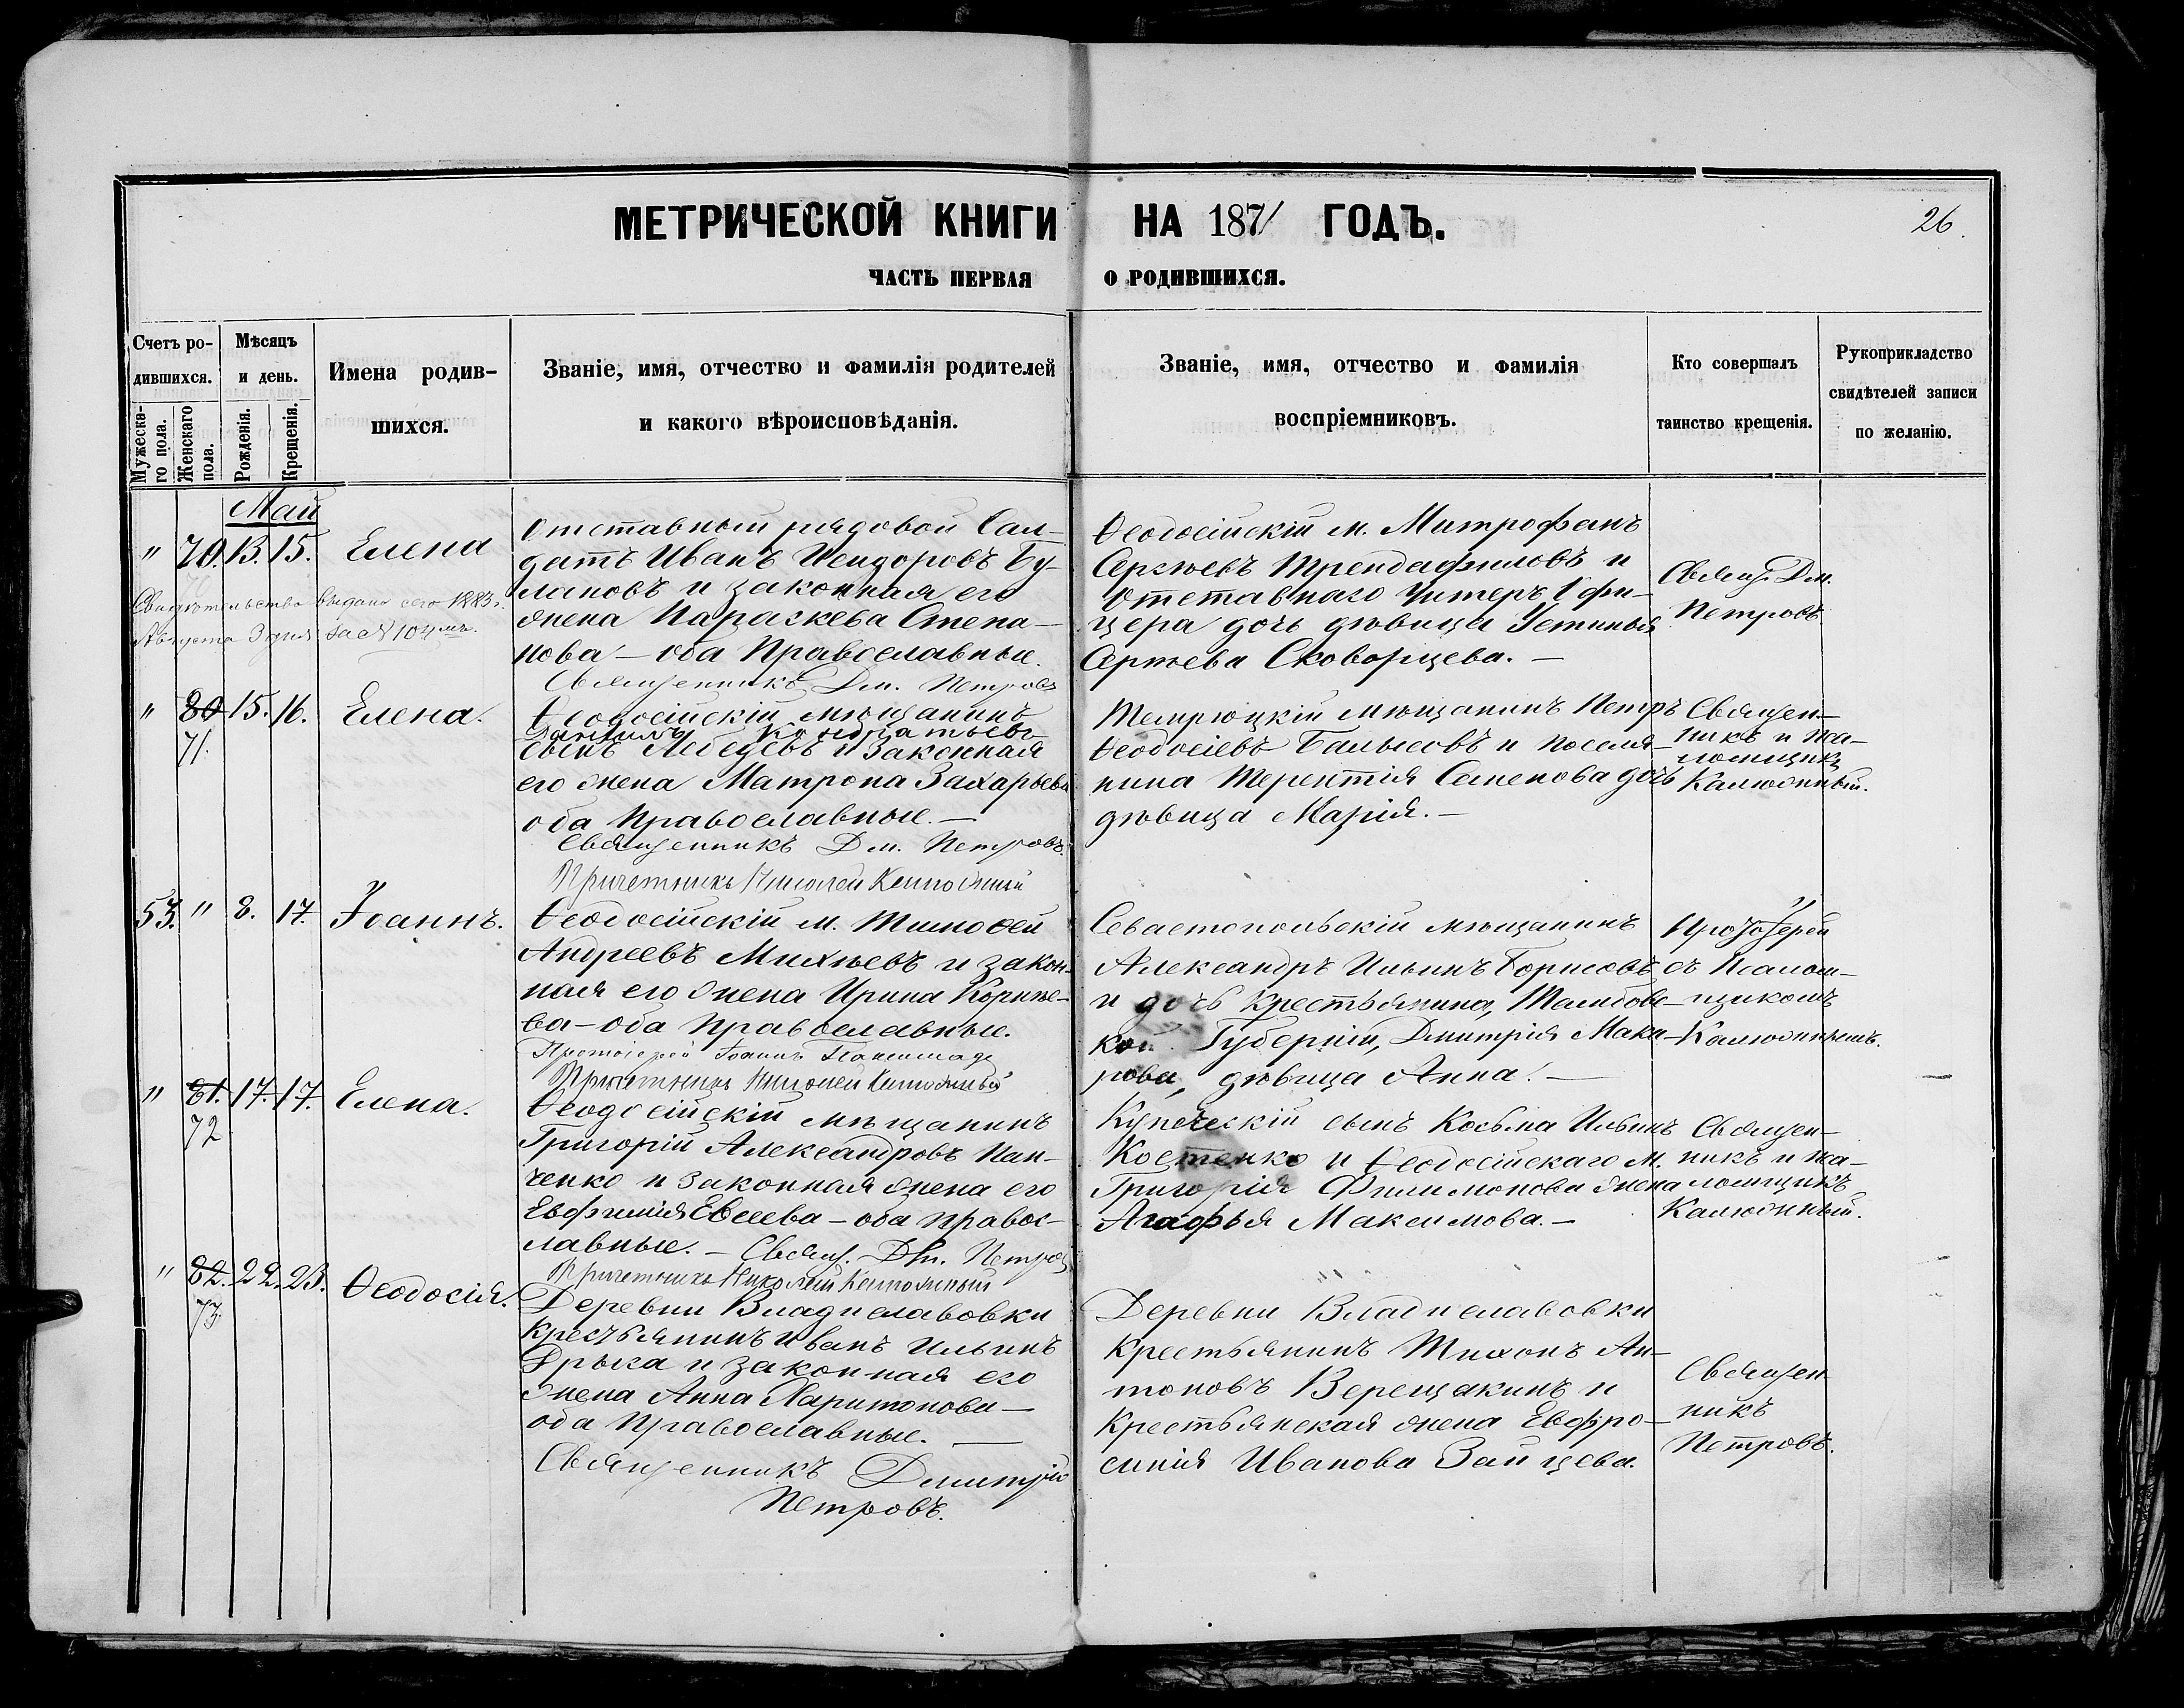 МЕТРИЧЕСКОЙ КНИГИ НА 1871 ГОДЪ.
26.
ЧАСТЬ ПЕРВАЯ О РОДИВШИХСЯ.
Счетъ родившихся.
Мужескаго пола.
Женскаго пола.
Мѣсяцъ и день.
Рожденія.
Крещенія.
Имена родившихся.
Званіе, имя, отчество и фамилія родителей
и какого вѣроисповѣданія.
Званіе, имя, отчество и фамилія
воспріемниковъ.
Кто совершалъ
таинство крещенія.
Рукоприкладство
свидѣтелей записи
по желанію.
Май
" 70. 13. 15. Елена
Свидѣтельство выдано сего 1883 г.
Августа 3 дня за № 104 мъ.
Отставный рядовой Сол-
датъ Иванъ Бу-
лановъ и законная его
жена Параскева Степа-
нова – оба Православные.
Священникъ Дм. Петровъ
Ѳеодосійскій м. Митрофанъ
Сергѣевъ Трендафиловъ и
Отставнаго Унтеръ Офи-
цера дочь дѣвица Устинья
Сергѣева Скворцева. –
Свящ. Дм.
Петровъ
" 80 15. 16. Елена.
71.
Ѳеодосійскій мѣщанинъ
Даніилъ Кондратьевъ
сынъ Лебедевъ и законная
его жена Матрона Захарьева
оба Православные. –
Священникъ Дм. Петровъ.
Причетникъ Николай
Темрюцкій мѣщанинъ Петръ
Ѳеодосіевъ и поселя-
нина Терентія Семенова дочь
дѣвица Марія. –
Священ-
никъ и Пса-
ломщикъ
Калюжный.
53. " 8. 17. Іоаннъ.
Ѳеодосійскій м. Тимоѳей
Андреевъ Михѣевъ и закон-
ная его жена Ирина Корнѣе-
ва – оба Православные.
Протоіерей Іоаннъ
Причетникъ Николай
Севастопольскій мѣщанинъ
Александръ Ильинъ Борисовъ
и дочь крестьянина, Тамбовс-
кой Губерніи, Дмитрія Мака-
рова, дѣвица Анна. –
Протоіерей
съ Псалом-
щикомъ
Калюжнымъ.
" 81. 17. 17. Елена.
72
Ѳеодосійскій мѣщанинъ
Григорій Александровъ Пан-
ченко и законная жена его
Евфимія Евсеева – оба правос-
лавные. – Свящ. Дм. Петровъ
Причетникъ Николай
Купеческій сынъ Косьма Ильинъ
Костенко и Ѳеодосійскаго м.
Григорія Филимонова жена
Агафья Максимова. –
Священ-
никъ и Пса-
ломщикъ
Калюжный.
" 82. 22. 23. Ѳеодосія.
73.
Деревни Владиславовки
Крестьянинъ Иванъ Ильинъ
Дрыга и законная его
жена Анна Харитонова –
оба Православные. –
Священникъ Дмитрій
Петровъ.
Деревни Владиславовки
Крестьянинъ Тихонъ Ан-
тоновъ Верещакинъ и
Крестьянская жена Евфро-
синія Иванова Зайцева.
Священ
никъ
Петровъ.